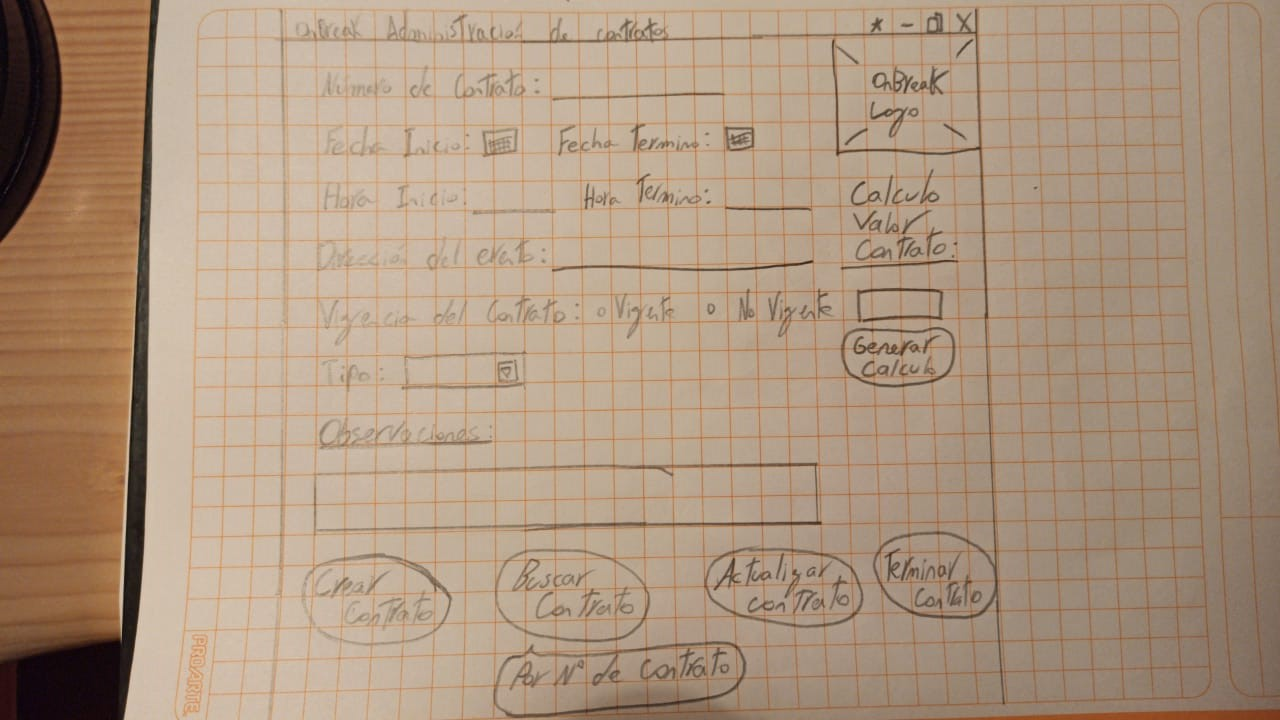 OnBreak Administracion de contratos * - X
Número de Contrato:
OnBreak
Logo
Fecha Inicio: Fecha Termino:
Hora Inicio: Hora Termino:
Calculo
Valor
Contrato:
Dirección del evento:
Vigencia del Contrato: o Vigente o No Vigente
Generar
Calculo
Tipo:
Observaciones:
Crear
Contrato
Buscar
Contrato
Actualizar
contrato
Terminar
Contrato
Por N° de contrato
PROARTE